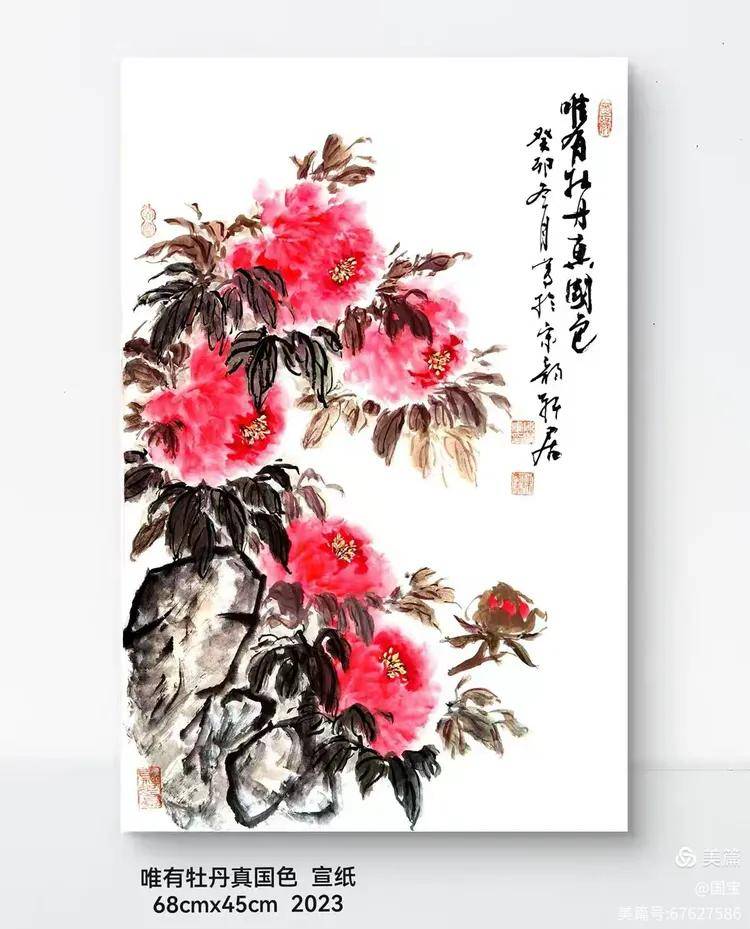 唯有牡丹真國色
癸卯冬月寫於宗韵轩居
唯有牡丹真国色 宣纸
68cmx45cm 2023
美篇
@国宝
美篇号:67627586